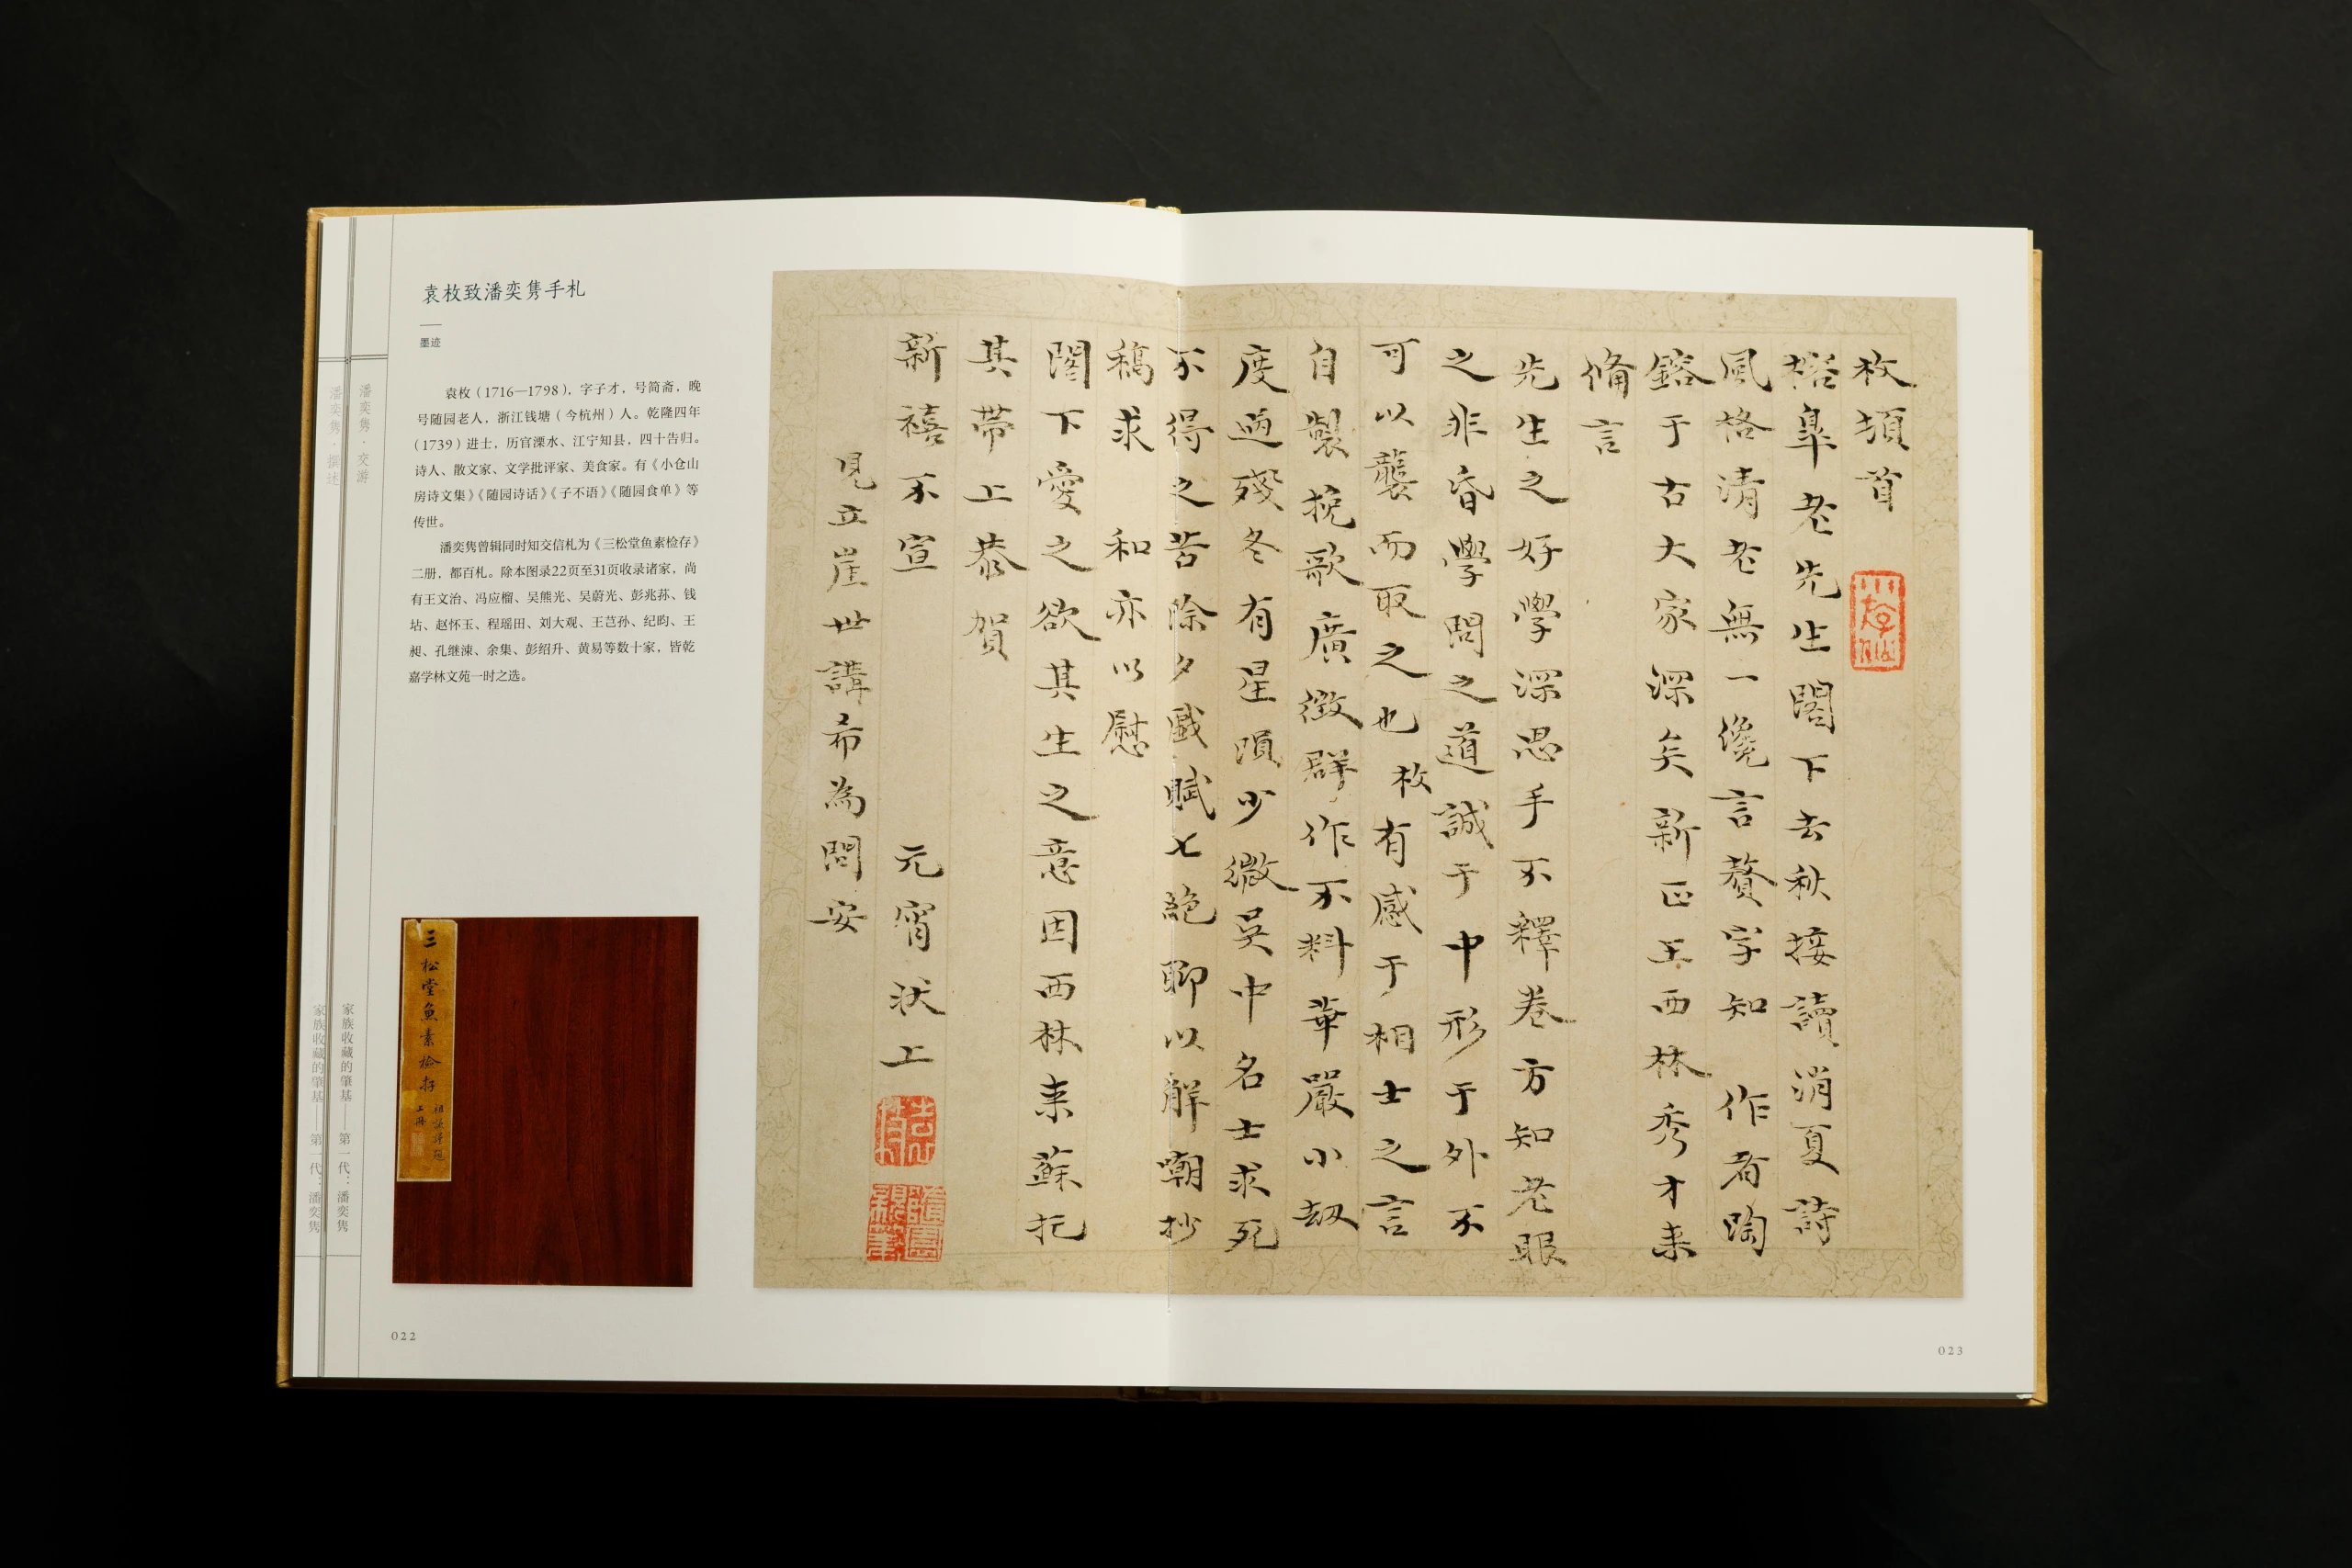 袁枚致潘奕隽手札
墨迹
袁枚（1716—1798），字子才，号简斋，晚
号随园老人，浙江钱塘（今杭州）人。乾隆四年
（1739）进士，历官溧水、江宁知县，四十告归。
诗人、散文家、文学批评家、美食家。有《小仓山
房诗文集》《随园诗话》《子不语》《随园食单》等
传世。
潘奕隽曾辑同时知交信札为《三松堂鱼素检存》
二册，都百札。除本图录22页至31页收录诸家，尚
有王文治、冯应榴、吴熊光、吴蔚光、彭兆荪、钱
坫、赵怀玉、程瑶田、刘大观、王芑孙、纪昀、王
昶、孔继涑、余集、彭绍升、黄易等数十家，皆乾
嘉学林文苑一时之选。
潘奕隽·交游
潘奕隽·撰述
家族收藏的肇基——第一代：潘奕隽
家族收藏的肇基——第一代：潘奕隽
三松堂魚素檢存
上冊
022
枚頓首
榕皋老先生閣下去秋接讀消夏詩
風格清老無一儳言贅字知 作者陶
鎔于古大家深矣新正王西林秀才來
備言
先生之好學深思手不釋卷方知老眼
之非昏學問之道誠于中形于外不
可以襲而取之也枚有感于相士之言
自製挽歌廣徵群作不料華嚴小劫
度過殘冬有星隕少微吳中名士求死
不得之苦除夕戲賦七絕聊以解嘲抄
稿求 和亦以慰
閣下愛之欲其生之意因西林來蘇托
其帶上恭賀
新禧不宣 元宵狀上
見立崖世講希為問安
023